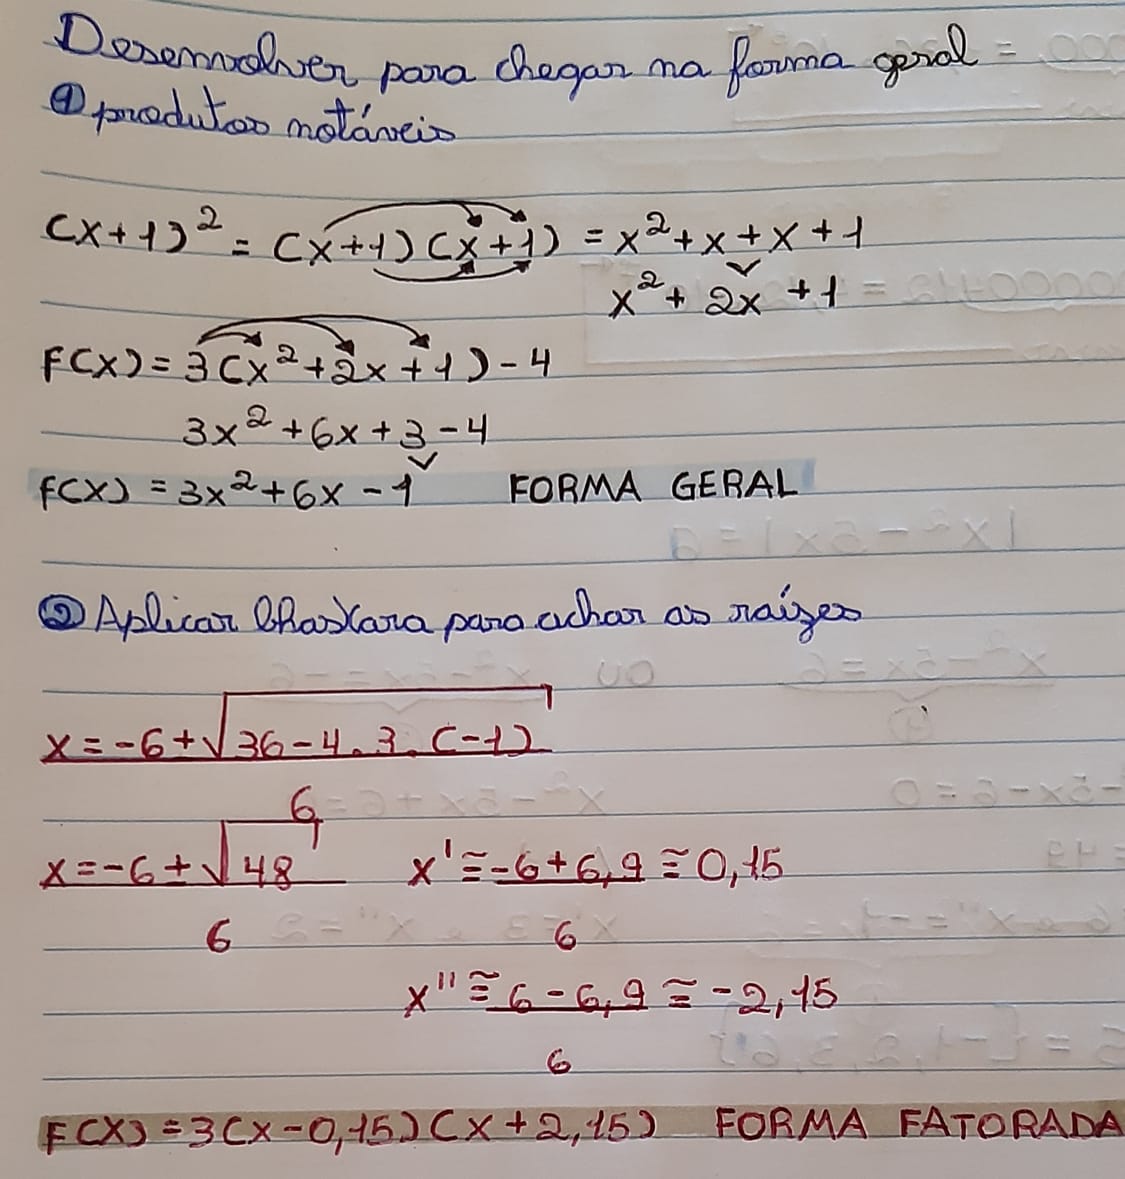 Desenvolver para chegar na forma geral =
① produtos notáveis
(x+1)² = (x+1)(x+1) = x²+x+x+1
x²+ 2x +1
F(x)=3(x²+2x+1)-4
3x²+6x+3-4
f(x)=3x²+6x-1 FORMA GERAL
② Aplicar Bhaskara para achar as raízes
x=-6±√36-4.3.(-1)
6
x=-6±√48 x'≅-6+6,9≅0,15
6 6
x''≅6-6,9≅-2,15
6
F(x)=3(x-0,15)(x+2,15) FORMA FATORADA